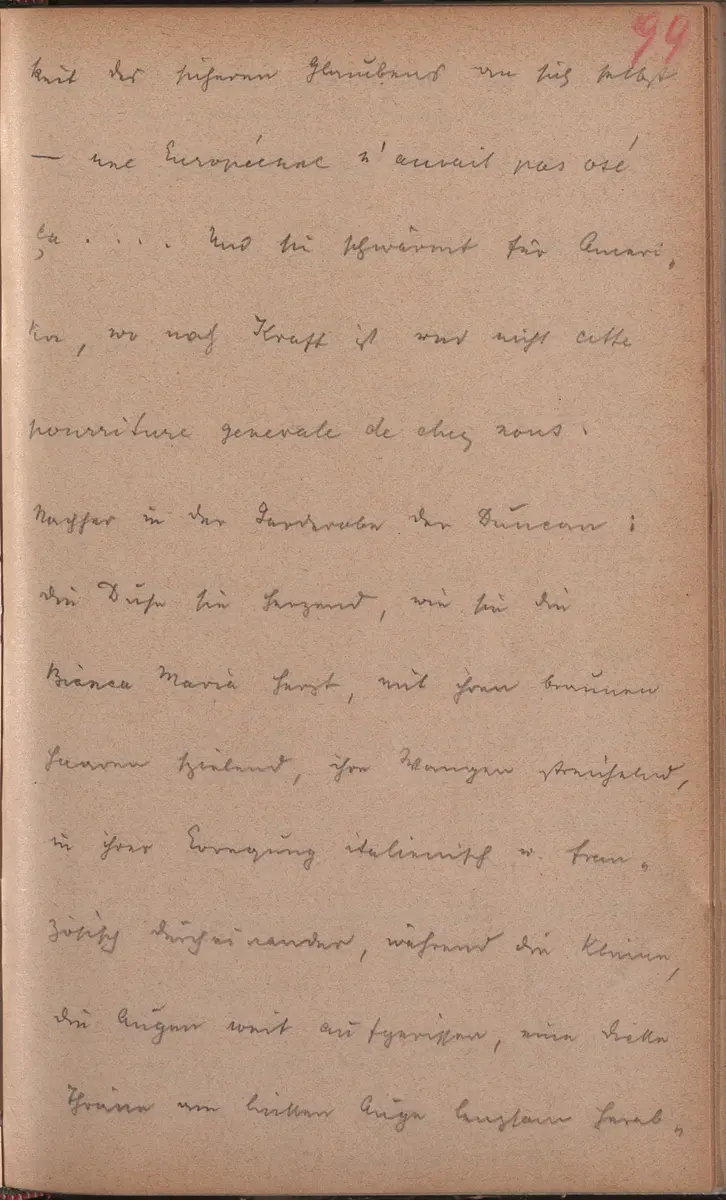 99
keit des sicheren Glaubens an sich selbst
— une Européenne n'aurait pas osé
ça . . . . Und sie schwärmt für Ameri„
ka, wo noch Kraft ist und nicht cette
pourriture generale de chez nous.
Nachher in der Garderobe der Duncan:
die Duse sie herzend, wie sie die
Bianca Maria herzt, mit ihren braunen
Haaren spielend, ihre Wangen streichelnd,
in ihrer Erregung italienisch u. fran„
zösisch durcheinander, während die Kleine,
die Augen weit aufgerissen, eine dicke
Thräne am linken Auge langsam herab„